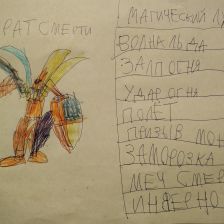 РАТ СМЕРТИ
МАГИЧЕСКИЙ
ВОЛНА ЛЬДА
ЗАЛП ОГНЯ
УДАР ОГНЯ
ПОЛЁТ
ПРИЗЫВ МОН
ЗАМОРОЗКА
МЕЧ СМЕР
ИНФЕРНО